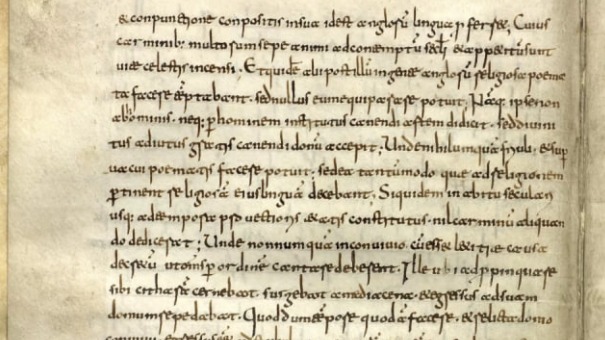 & conpunctione conpositis in sua id est anglorū lingua pferret; Cuius
carminib; multorum sepe animi ad contemptū scl̄i & appetitum sunt
uitae celestis incensi. Et quidē alii post illū in gente anglorū religiosa poema
ta facere temptabant. sed nullus eum equiparare potuit. Naq; ipse non
ab hominib; neq; p hominem institutus canendi artem didicit. sed diuini
tus adiutus gratis canendi donū accepit; Unde nihil umquā friuoli. & sup
uacui poematis facere potuit. sed ea tantummodo que ad religionem
ptinent religiosā eius linguā decebant; Siquidem in abitu seculari
usq; ad tempora puectioris aetatis constitutus. nil carminū aliquan
do dedicerat; Unde nonnumquā in conuiuio. cū esset laetitiae causa
decretū ut omnes p ordinē cantare deberent. Ille ubi adppinquare
sibi citharā cernebat. surgebat a media cena. & egressus ad suam
domum repedabat. Quod dum tempore quodā faceret. & relicta domo